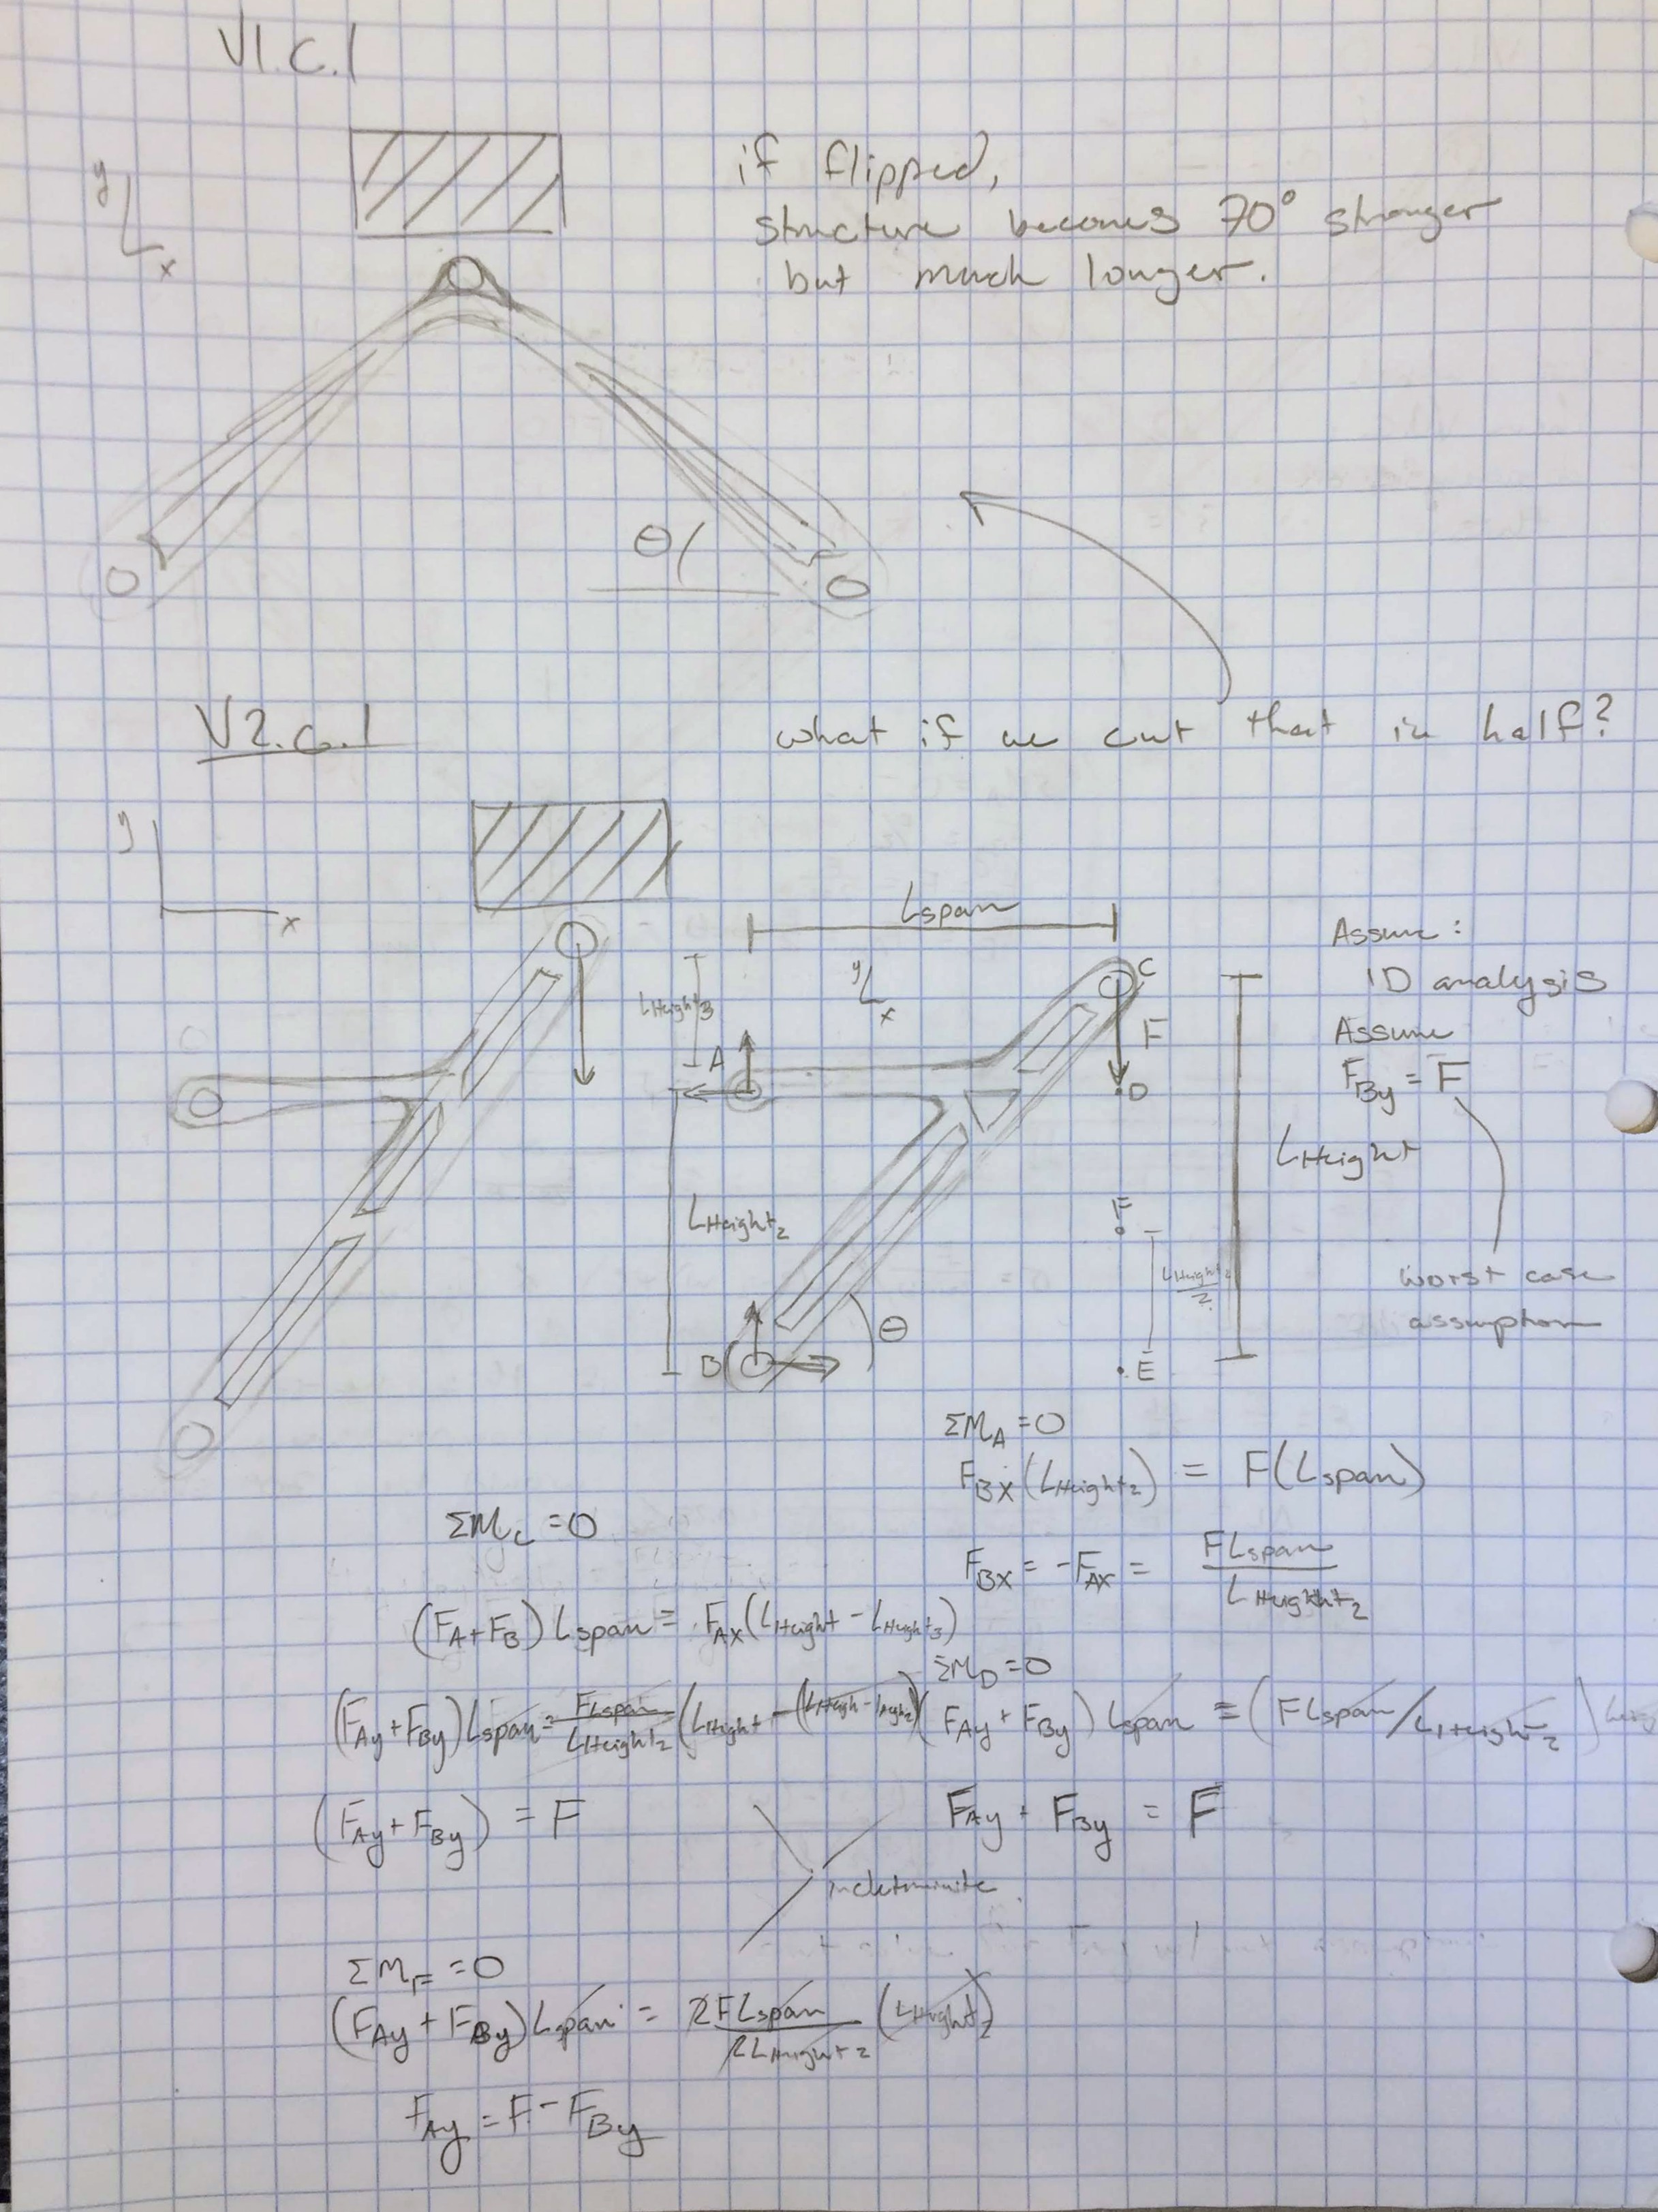 V1.C.1
y
x
if flipped,
structure becomes 70° stronger
but much longer.
θ
V2.C.1
what if we cut that in half?
y
x
Lspan
Assume:
1D analysis
Assume
F_By = F
worst case
assumption
LHeight3
y
x
C
F
A
D
LHeight
LHeight2
F
LHeight2/2
θ
B
E
ΣM_A = 0
F_BX (LHeight2) = F(Lspan)
ΣM_C = 0
F_BX = -F_AX = FLspan/LHeight2
(F_A+F_B) Lspan = F_AX (LHeight - LHeight3)
ΣM_D = 0
(F_Ay+F_By) Lspan = FLspan/LHeight2 (LHeight - (LHeigh - LHeight2))
(F_Ay + F_By) Lspan = (FLspan/LHeight2)
(F_Ay+F_By) = F
F_Ay + F_By = F
indeterminite
ΣM_F = 0
(F_Ay + F_By) Lspan = 2FLspan/2LHeight2 (LHeight2)
F_Ay = F - F_By